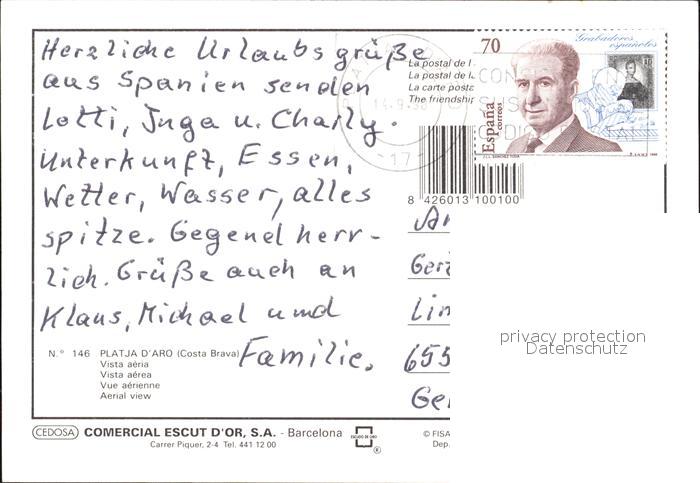 Herzliche Urlaubsgrüße
aus Spanien senden
Lotti, Inga u. Charly.
Unterkunft, Essen,
Wetter, Wasser, alles
spitze. Gegend herr-
lich. Grüße auch an
Klaus, Michael und
Familie.
La postal de l
La postal de l
La carte posta
The friendship
70
Grabadores
españoles
España
correos
8 426013 100100
An
Lin
655
Ge
privacy protection
Datenschutz
N.° 146 PLATJA D'ARO (Costa Brava)
Vista aèria
Vista aérea
Vue aérienne
Aerial view
CEDOSA COMERCIAL ESCUT D'OR, S.A. - Barcelona
Carrer Piquer, 2-4 Tel. 441 12 00
ESCUDO DE ORO
®
© FISA
Dep.